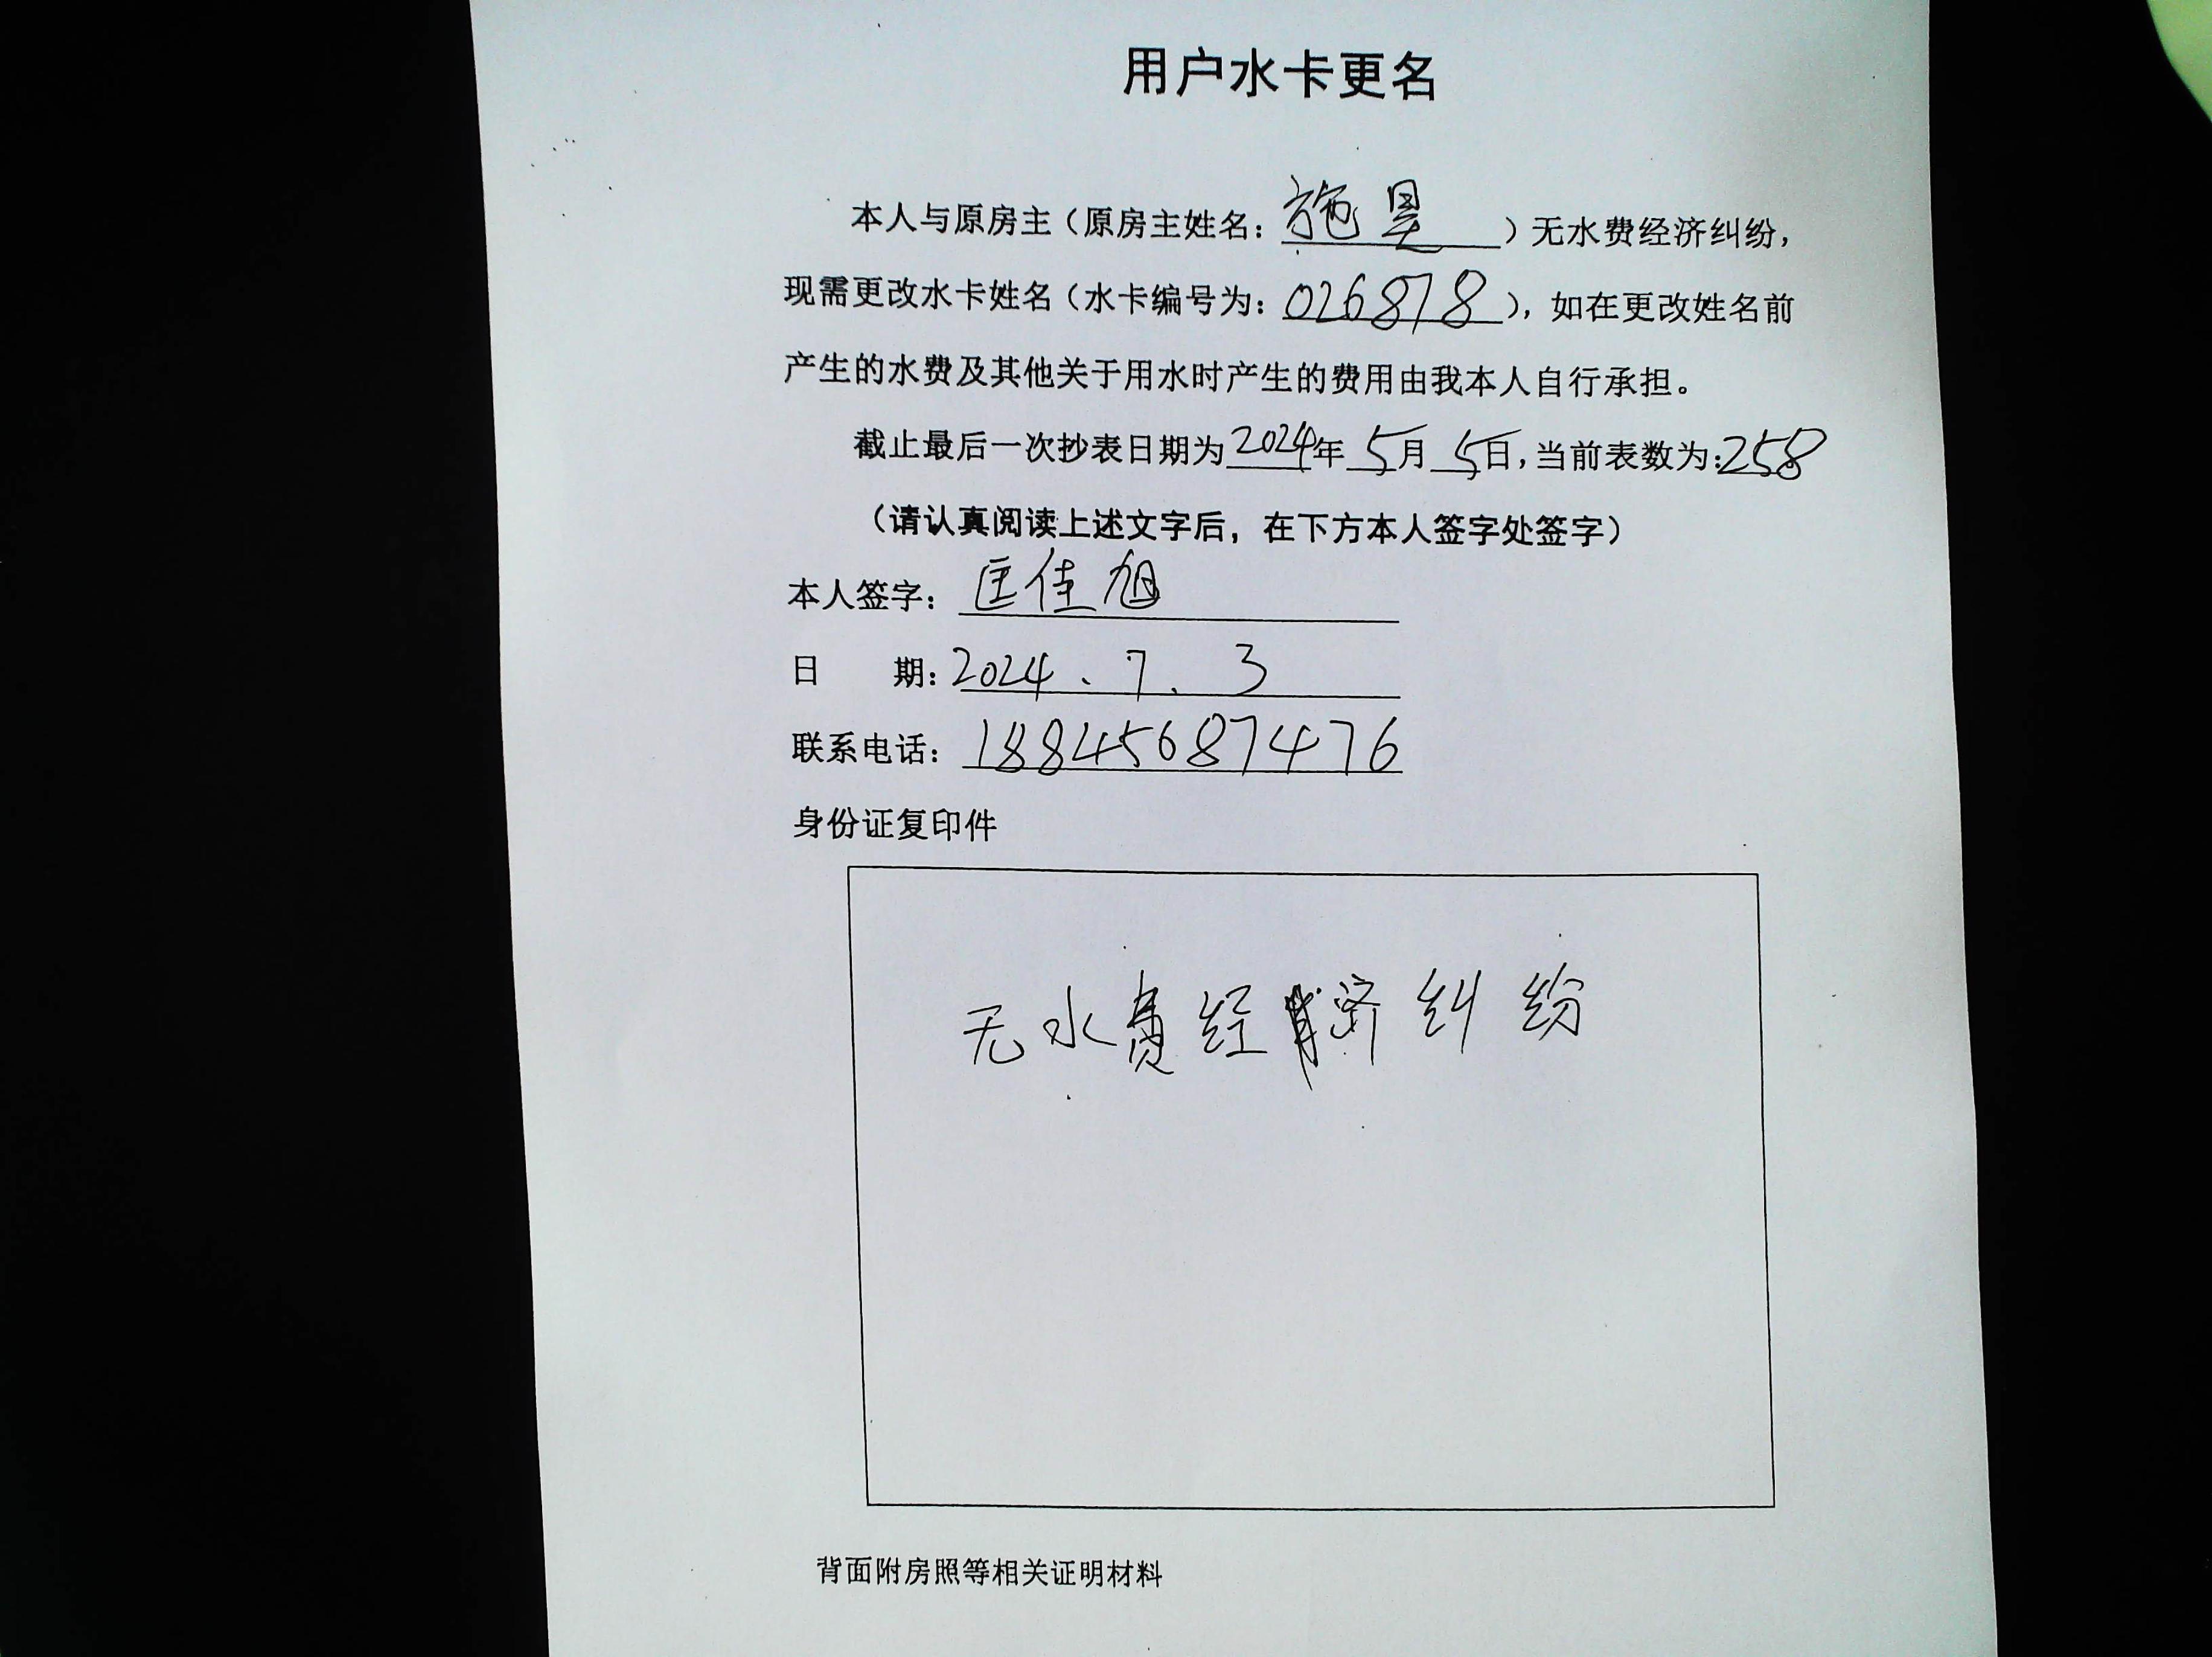 用户水卡更名
本人与原房主（原房主姓名：施昊）无水费经济纠纷，
现需更改水卡姓名（水卡编号为：026878），如在更改姓名前
产生的水费及其他关于用水时产生的费用由我本人自行承担。
截止最后一次抄表日期为2024年5月5日，当前表数为：258
（请认真阅读上述文字后，在下方本人签字处签字）
本人签字：匡佳旭
日 期：2024、7、3
联系电话：18845687476
身份证复印件
无水费经济纠纷
背面附房照等相关证明材料